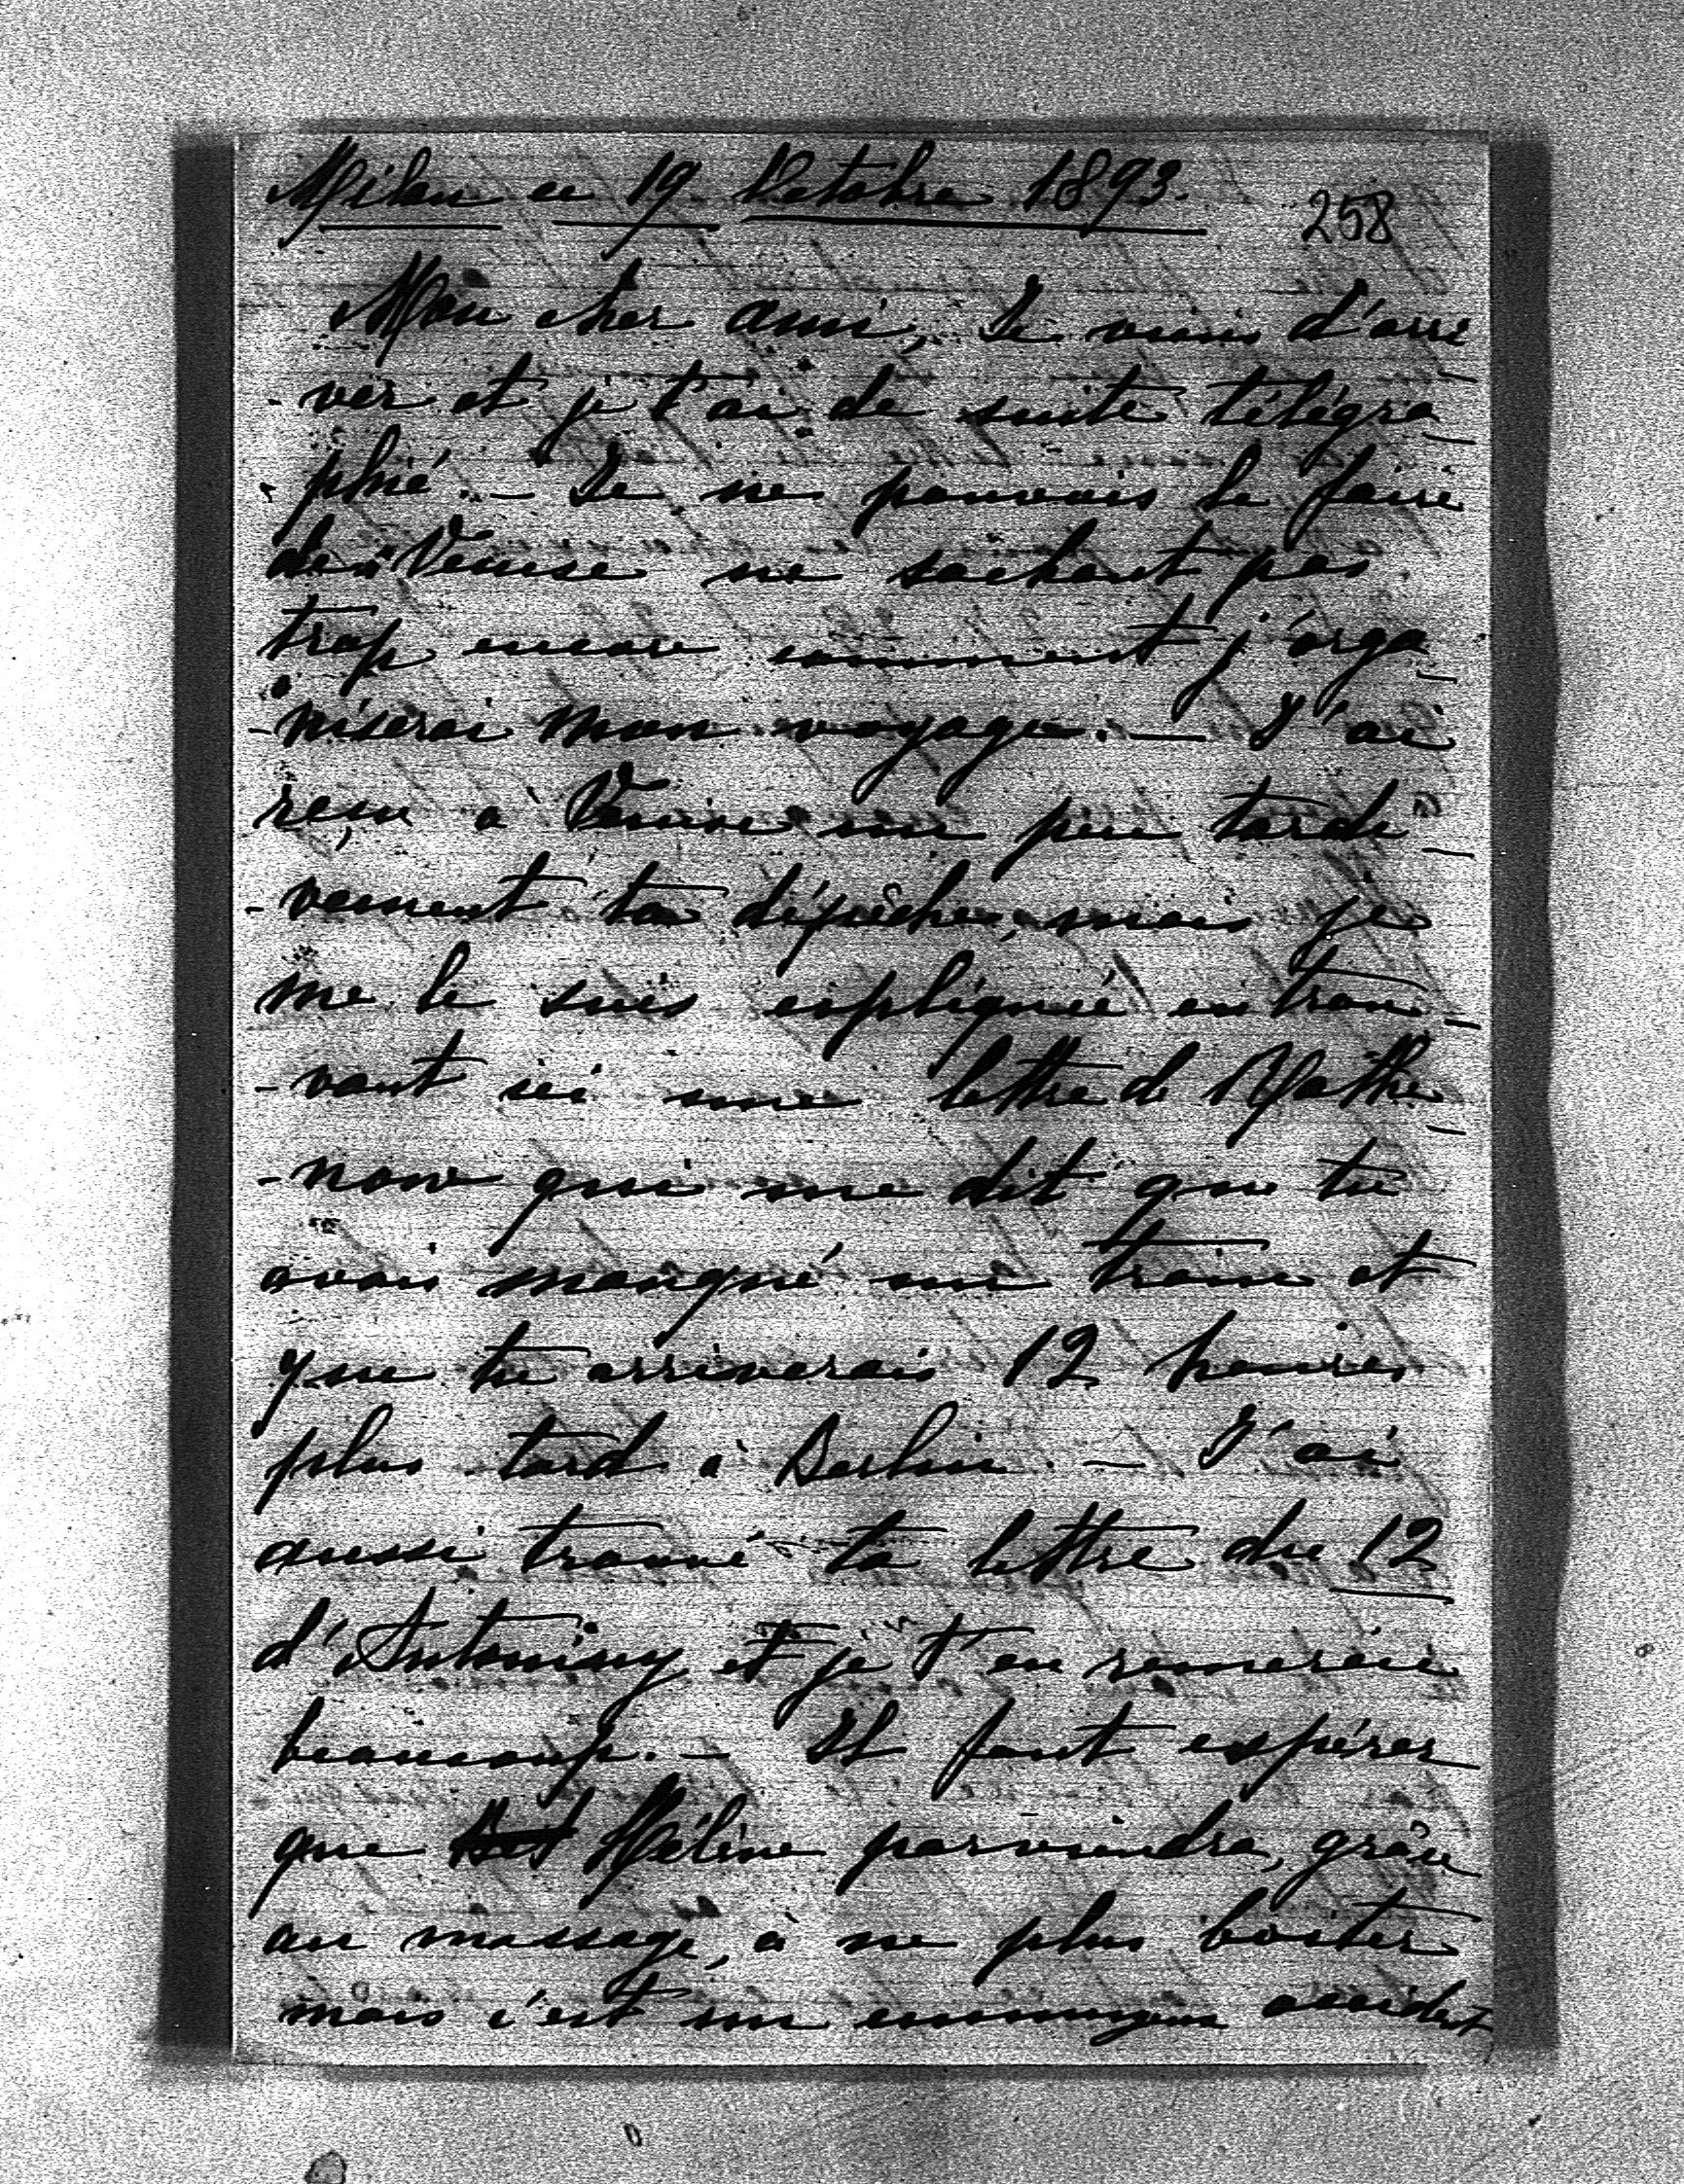 Milan ce 19 Octobre 1893.
258
Mon cher ami, Je viens d'arri
-ver et je t'ai de suite télégra
-phié. - Je ne pouvais le faire
de Venise ne sachant pas
trop encore comment j'orga
-niserai mon voyage. - J'ai
reçu à Venise un peu tardi
-vement ta dépêche, mais je
me le suis expliqué en trou
-vant ici une lettre de Rathe
-now qui me dit que tu
avais manqué un train et
que tu arriverais 12 heures
plus tard à Berlin. - J'ai
aussi trouvé ta lettre du 12
d'Antoniny et je t'en remercie
beaucoup. - Il faut espérer
que Hélène parviendra, grâce
au massage, à ne plus boiter
mais c'est un ennuyeux accident